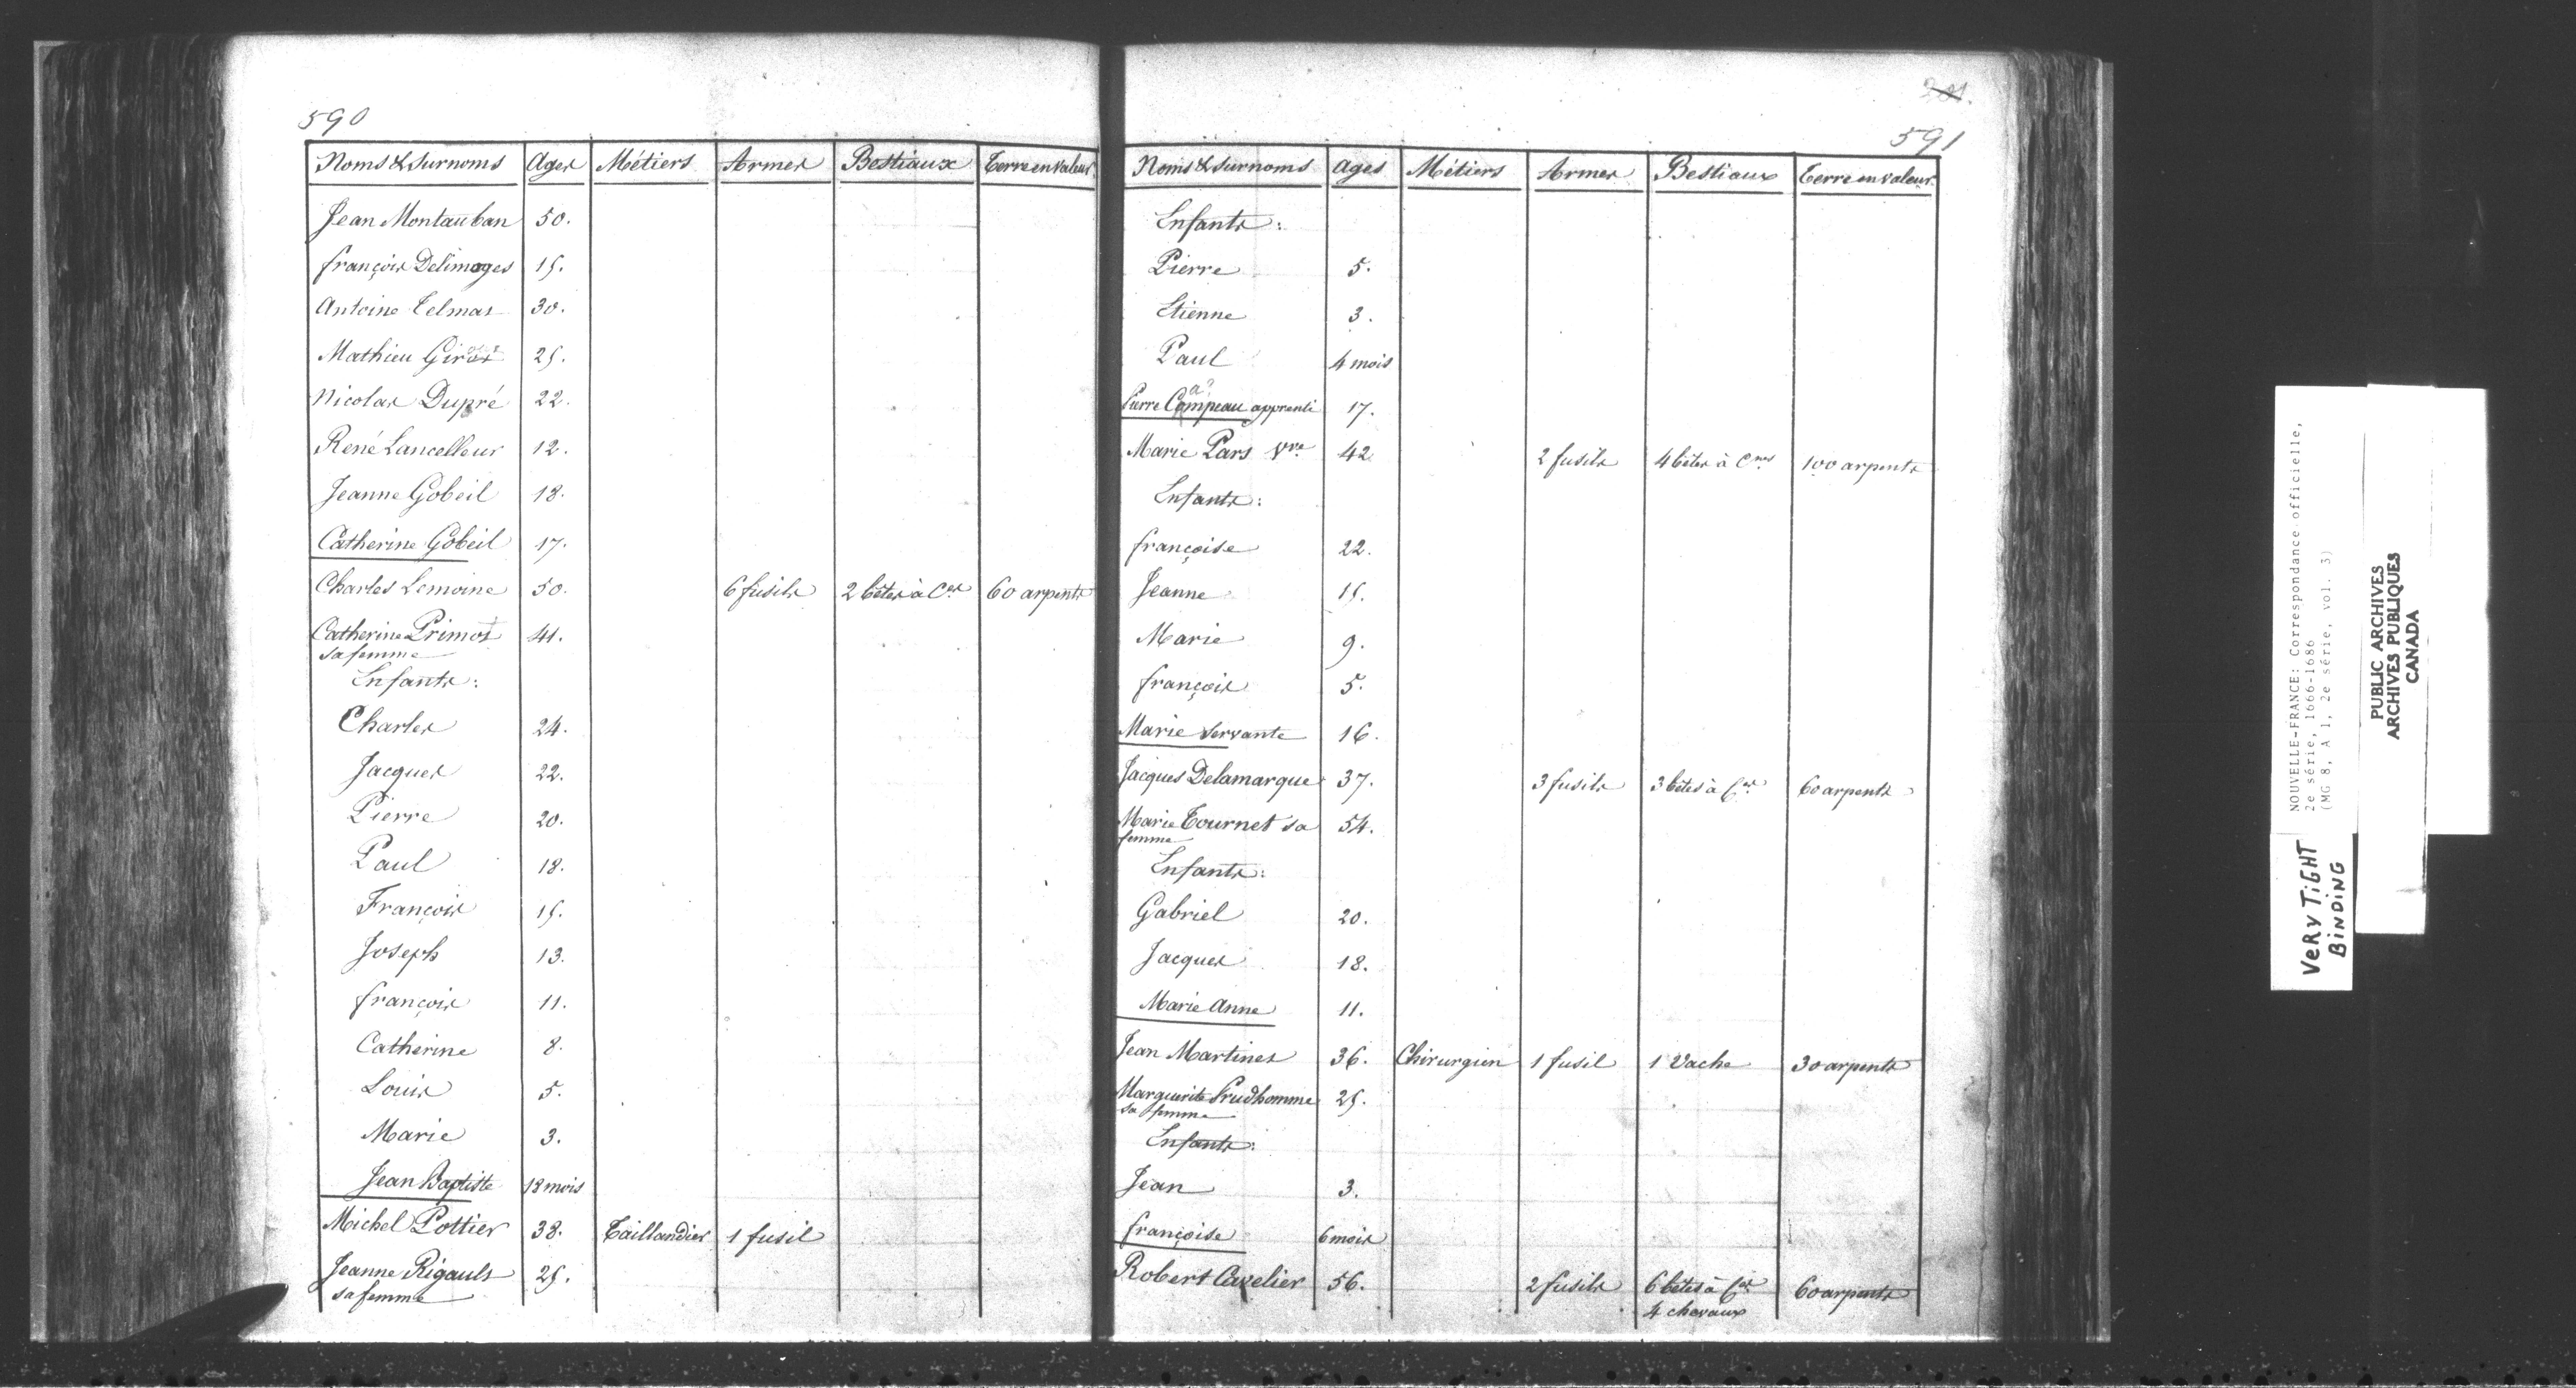 590
Noms & Surnoms Ages Métiers Armes Bestiaux Terre en valeur
Jean Montauban 50.
françois Delimoges 15.
Antoine Telmas 30.
Mathieu 25.
Nicolas Dupré 22.
René Lancelleur 12.
Jeanne Gobeil 18.
Catherine Gobeil 17.
Charles Lemoine 50. 6 fusils 2 bêtes à Ces 60 arpents
Catherine Primot 41.
sa femme
Enfants:
Charles 24.
Jacques 22.
Pierre 20.
Paul 18.
François 15.
Joseph 13.
françois 11.
Catherine 8.
Louis 5.
Marie 3.
Jean Baptiste 18 mois
Michel Pottier 38. Taillandier 1 fusil
Jeanne Rigauls 25.
sa femme
201.
591
Noms & Surnoms Ages Métiers Armes Bestiaux Terre en valeur
Enfants:
Pierre 5.
Etienne 3.
Paul 4 mois
a?
Pierre Compeau apprenti 17.
Marie Pars Vve 42 2 fusils 4 bêtes à Cnes 100 arpents
Enfants:
françoise 22.
Jeanne 15.
Marie 9.
françois 5.
Marie servante 16.
Jacques Delamarque 37. 3 fusils 3 bêtes à Ces 60 arpents
Marie Tournet sa 54.
femme
Enfants:
Gabriel 20.
Jacques 18.
Marie Anne 11.
Jean Martines 36. Chirurgien 1 fusil 1 Vache 30 arpents
Marguerite Prudhomme 25.
sa femme
Enfants:
Jean 3.
françoise 6 mois
Robert Cavelier 56. 2 fusils 6 bêtes à Ces 60 arpents
4 chevaux
NOUVELLE-FRANCE: Correspondance officielle,
2e série, 1666-1686
(MG 8, A 1, 2e série, vol. 3)
VERY TIGHT
BINDING
PUBLIC ARCHIVES
ARCHIVES PUBLIQUES
CANADA